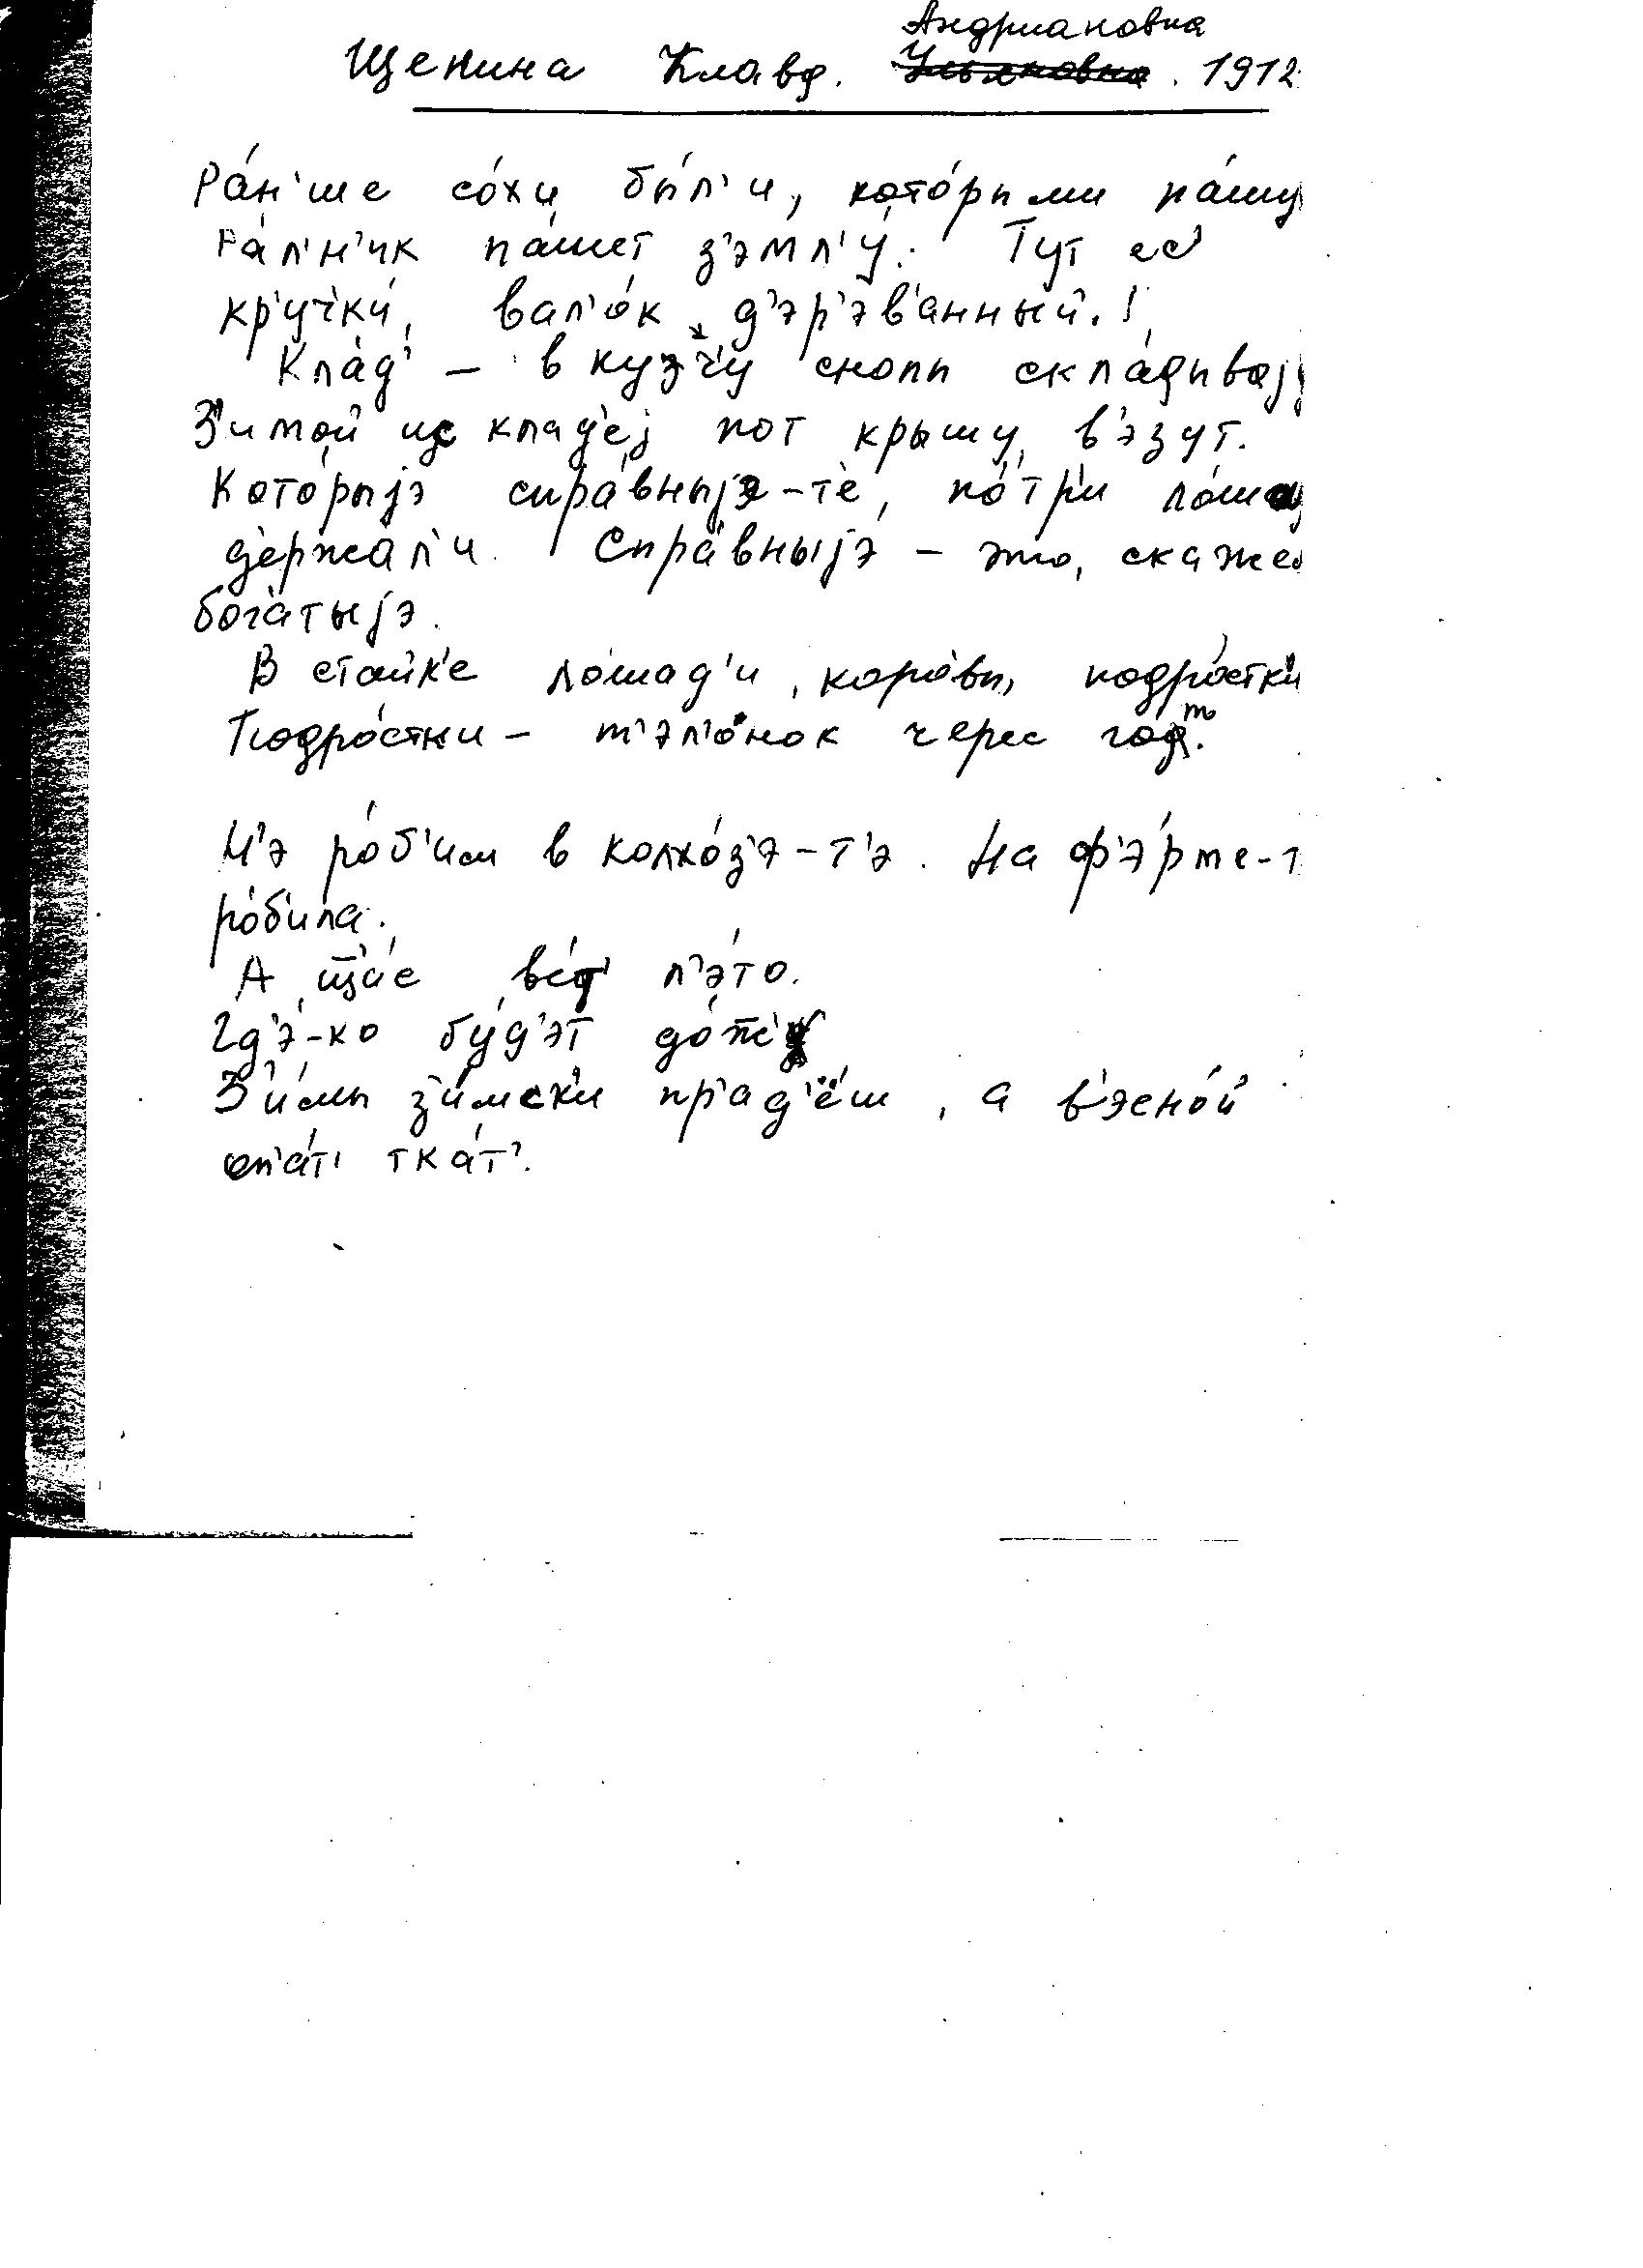 Андриановна
Щенина Клавд. Ульяновна. 1912
Ра́н'ше со́хи бы́л'и, кото́рыми па́шу
ра́л'н'ик па́шет з'эмл'у́. Тут ес'
кр'учк'и́, вал'о́к д'эр'эв'а́нный.
Кла́д' – в кузчу снопы скла́дывај
З'имо́й ис клад'е́ј пот кры́шу в'эзу́т.
Кото́рыјэ спра́вныјэ-те, по́ тр'и ло́ша
д'ержа́л'и. Спра́выјэ – это, скаже
бога́тыјэ.
В ста́йк'е ло́шад'и, коро́вы, подро́стк'и
Подро́стки – т'эл'о́нок черес го́т.
М'э ро́б'им в колхо́з'э-т'э. На ф'э́рме-т
ро́б'ила.
А шша́с вет' л'э́то.
Гд'э́-ко бу́д'эт до́ж
З'и́мы з'и́мск'и пр'ад'ёш, а в'эсно́й
оп'а́т' тка́т'.